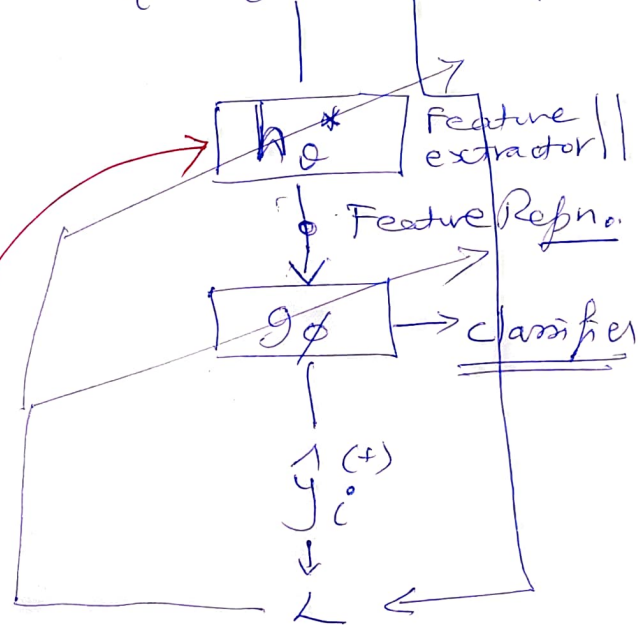 hθ* Feature
extractor
Feature Repn.
gϕ classifier
ŷi(+)
L